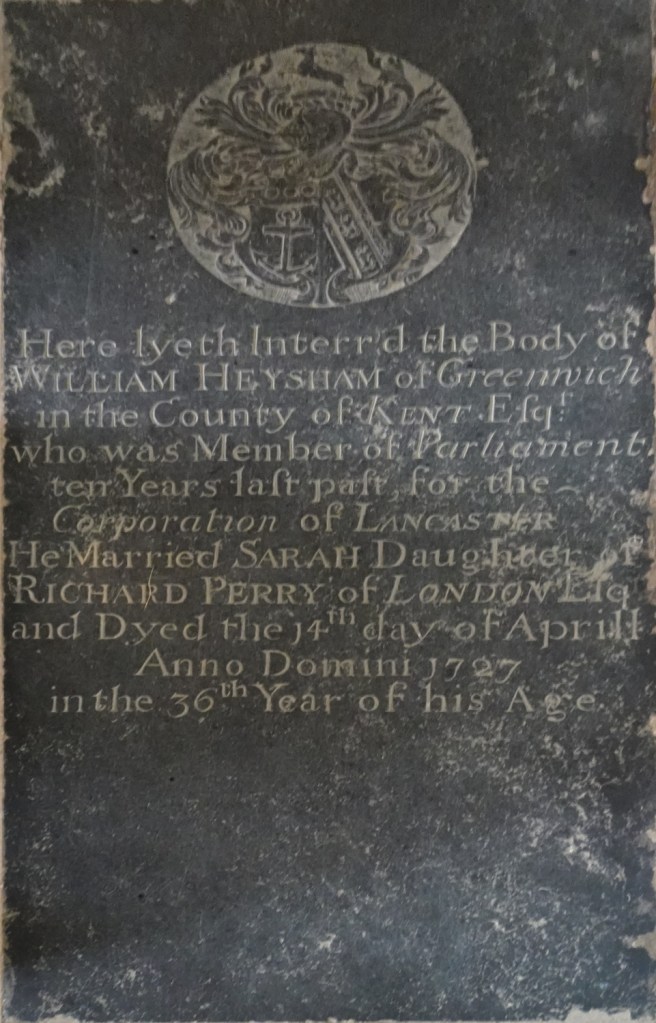 Here lyeth Interr'd the Body of
WILLIAM HEYSHAM of Greenwich
in the County of KENT Eſqr.
who was Member of Parliament
ten Years laſt paſt, for the
Corporation of LANCASTER
He Married SARAH Daughter of
RICHARD PERRY of LONDON Eſq
and Dyed the 14th day of Aprill
Anno Domini 1727
in the 36th Year of his Age.